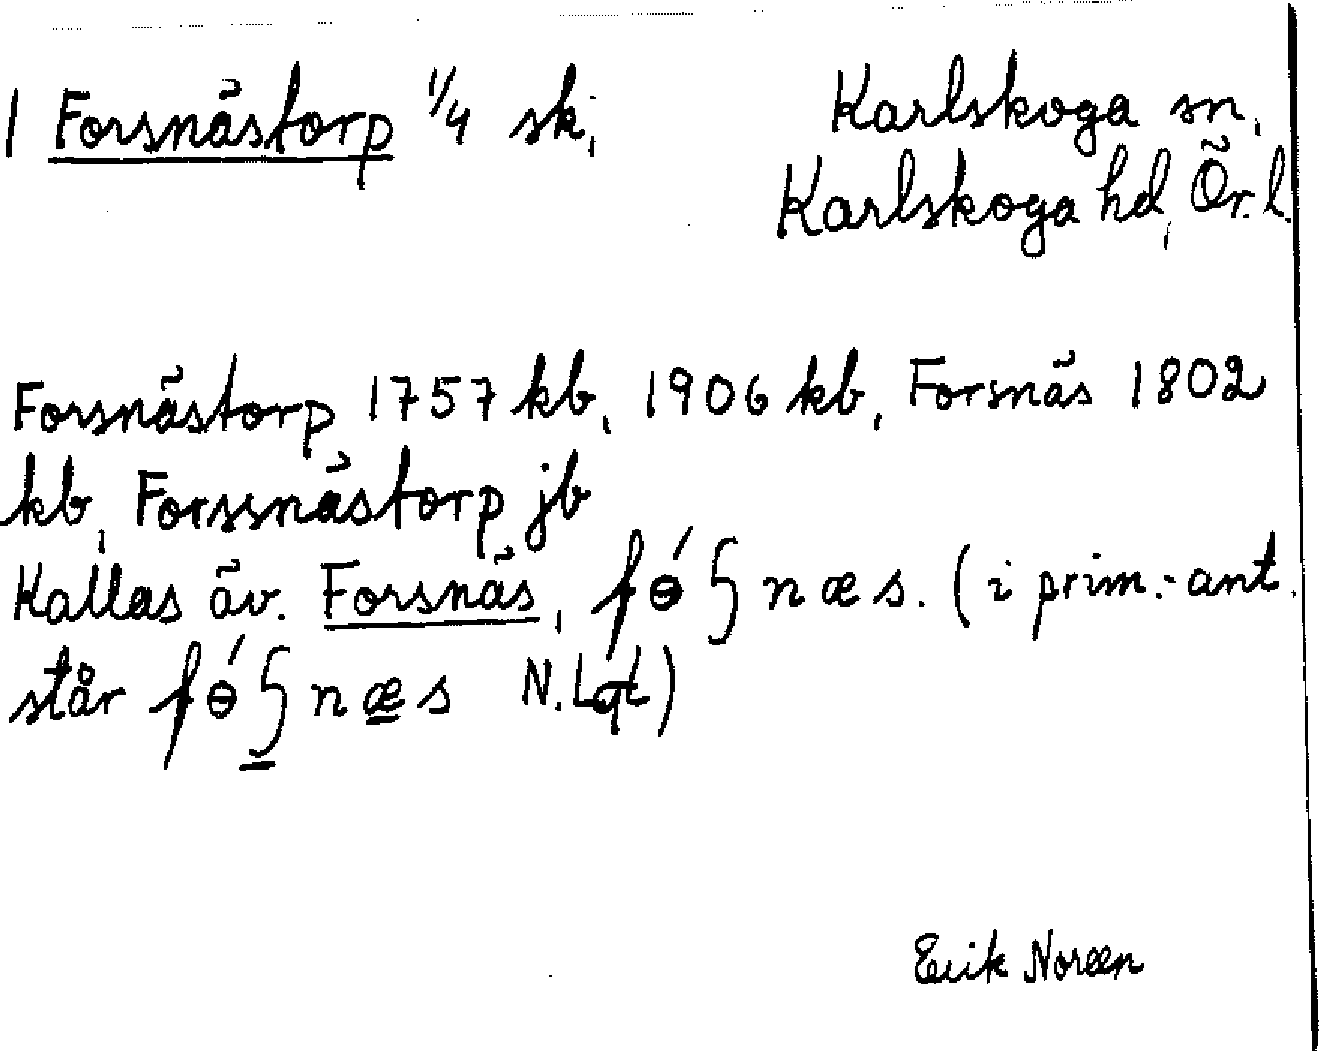 1 Forsnästorp 1/4 sk, Karlskoga sn,
Karlskoga hd, Ör. l.
Forsnästorp 1757 kb, 1906 kb, Forsnäs 1802
kb, Forssnästorp jb
Kallas äv. Forsnäs, fɵ́ʃnæs. (i prim.-ant.
står fɵ́ʃnæs N. Lqt)
Erik Noreen